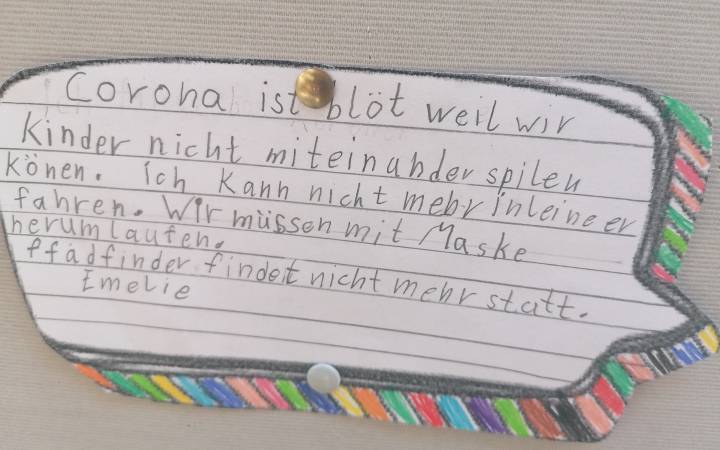 Corona ist blöt weil wir
Kinder nicht miteinander spilen
könen. ich kann nicht mehr inleineer
fahren. Wir müssen mit Maske
herumlaufen.
Pfadfinder findet nicht mehr statt.
Emelie